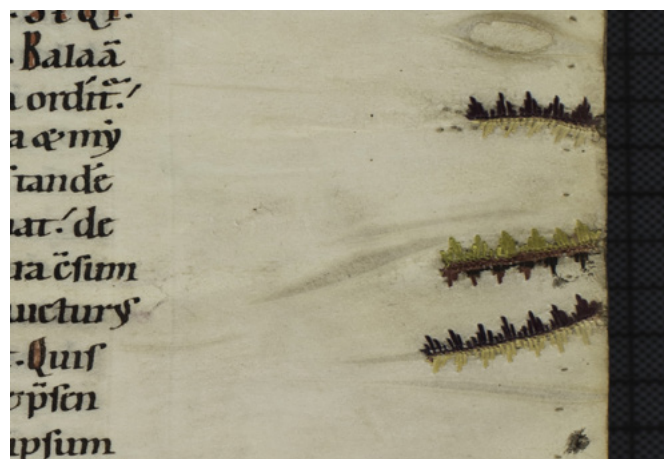 Balaā
ordīt:
a & mẏ
tandē
at: de
ra c̄sum
uictury
Quis
p̄sen
ipsum